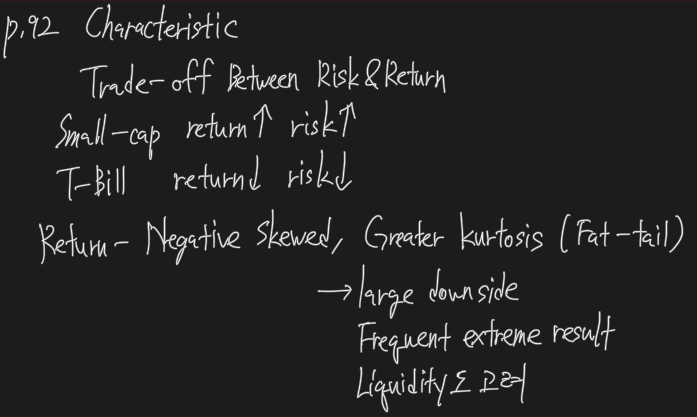 p.92 Characteristic
Trade-off Between Risk & Return
Small-cap return↑ risk↑
T-Bill return↓ risk↓
Return - Negative skewed, Greater kurtosis (Fat-tail)
→ large downside
Frequent extreme result
Liquidity도 고려